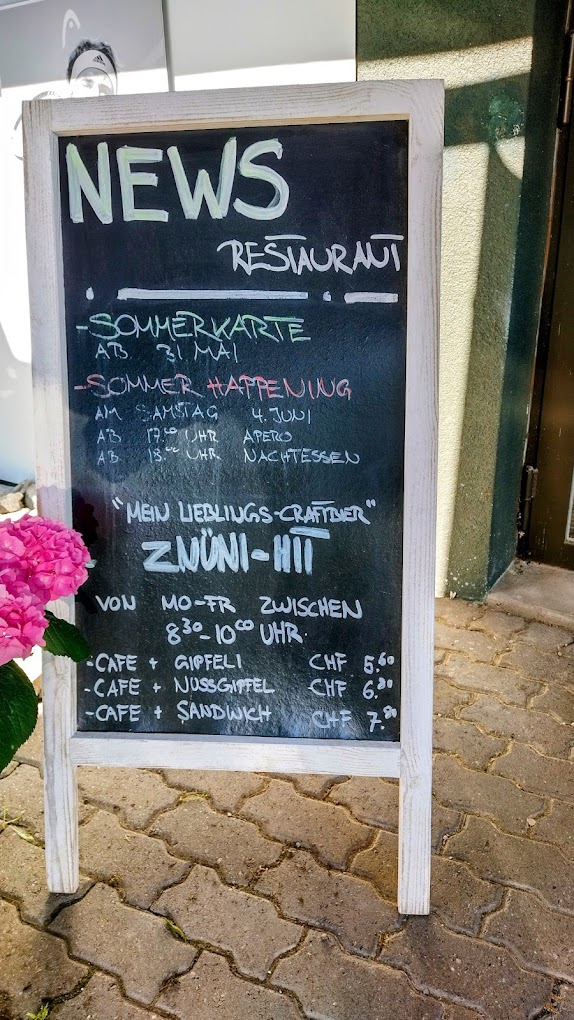 NEWS
RESTAURANT
- SOMMERKARTE
AB 31. MAI
- SOMMER HAPPENING
AM SAMSTAG 4. JUNI
AB 17.00 UHR APERO
AB 18.00 UHR NACHTESSEN
"MEIN LIEBLINGS-CRAFTBIER"
ZNÜNI-HIT
VON MO-FR ZWISCHEN
8.30-10.00 UHR.
- CAFE + GIPFELI CHF 5.60
- CAFE + NUSSGIPFEL CHF 6.80
- CAFE + SANDWICH CHF 7.80